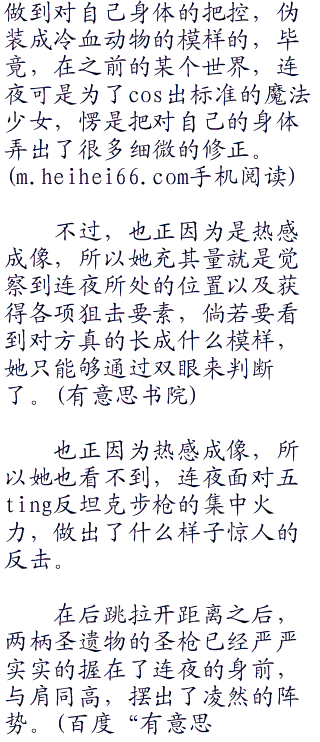 做到对自己身体的把控，伪
装成冷血动物的模样的，毕
竟，在之前的某个世界，连
夜可是为了cos出标准的魔法
少女，愣是把对自己的身体
弄出了很多细微的修正。
(m.heihei66.com手机阅读)
不过，也正因为是热感
成像，所以她充其量就是觉
察到连夜所处的位置以及获
得各项狙击要素，倘若要看
到对方真的长成什么模样，
她只能够通过双眼来判断
了。(有意思书院)
也正因为热感成像，所
以她也看不到，连夜面对五
ting反坦克步枪的集中火
力，做出了什么样子惊人的
反击。
在后跳拉开距离之后，
两柄圣遗物的圣枪已经严严
实实的握在了连夜的身前，
与肩同高，摆出了凌然的阵
势。(百度“有意思